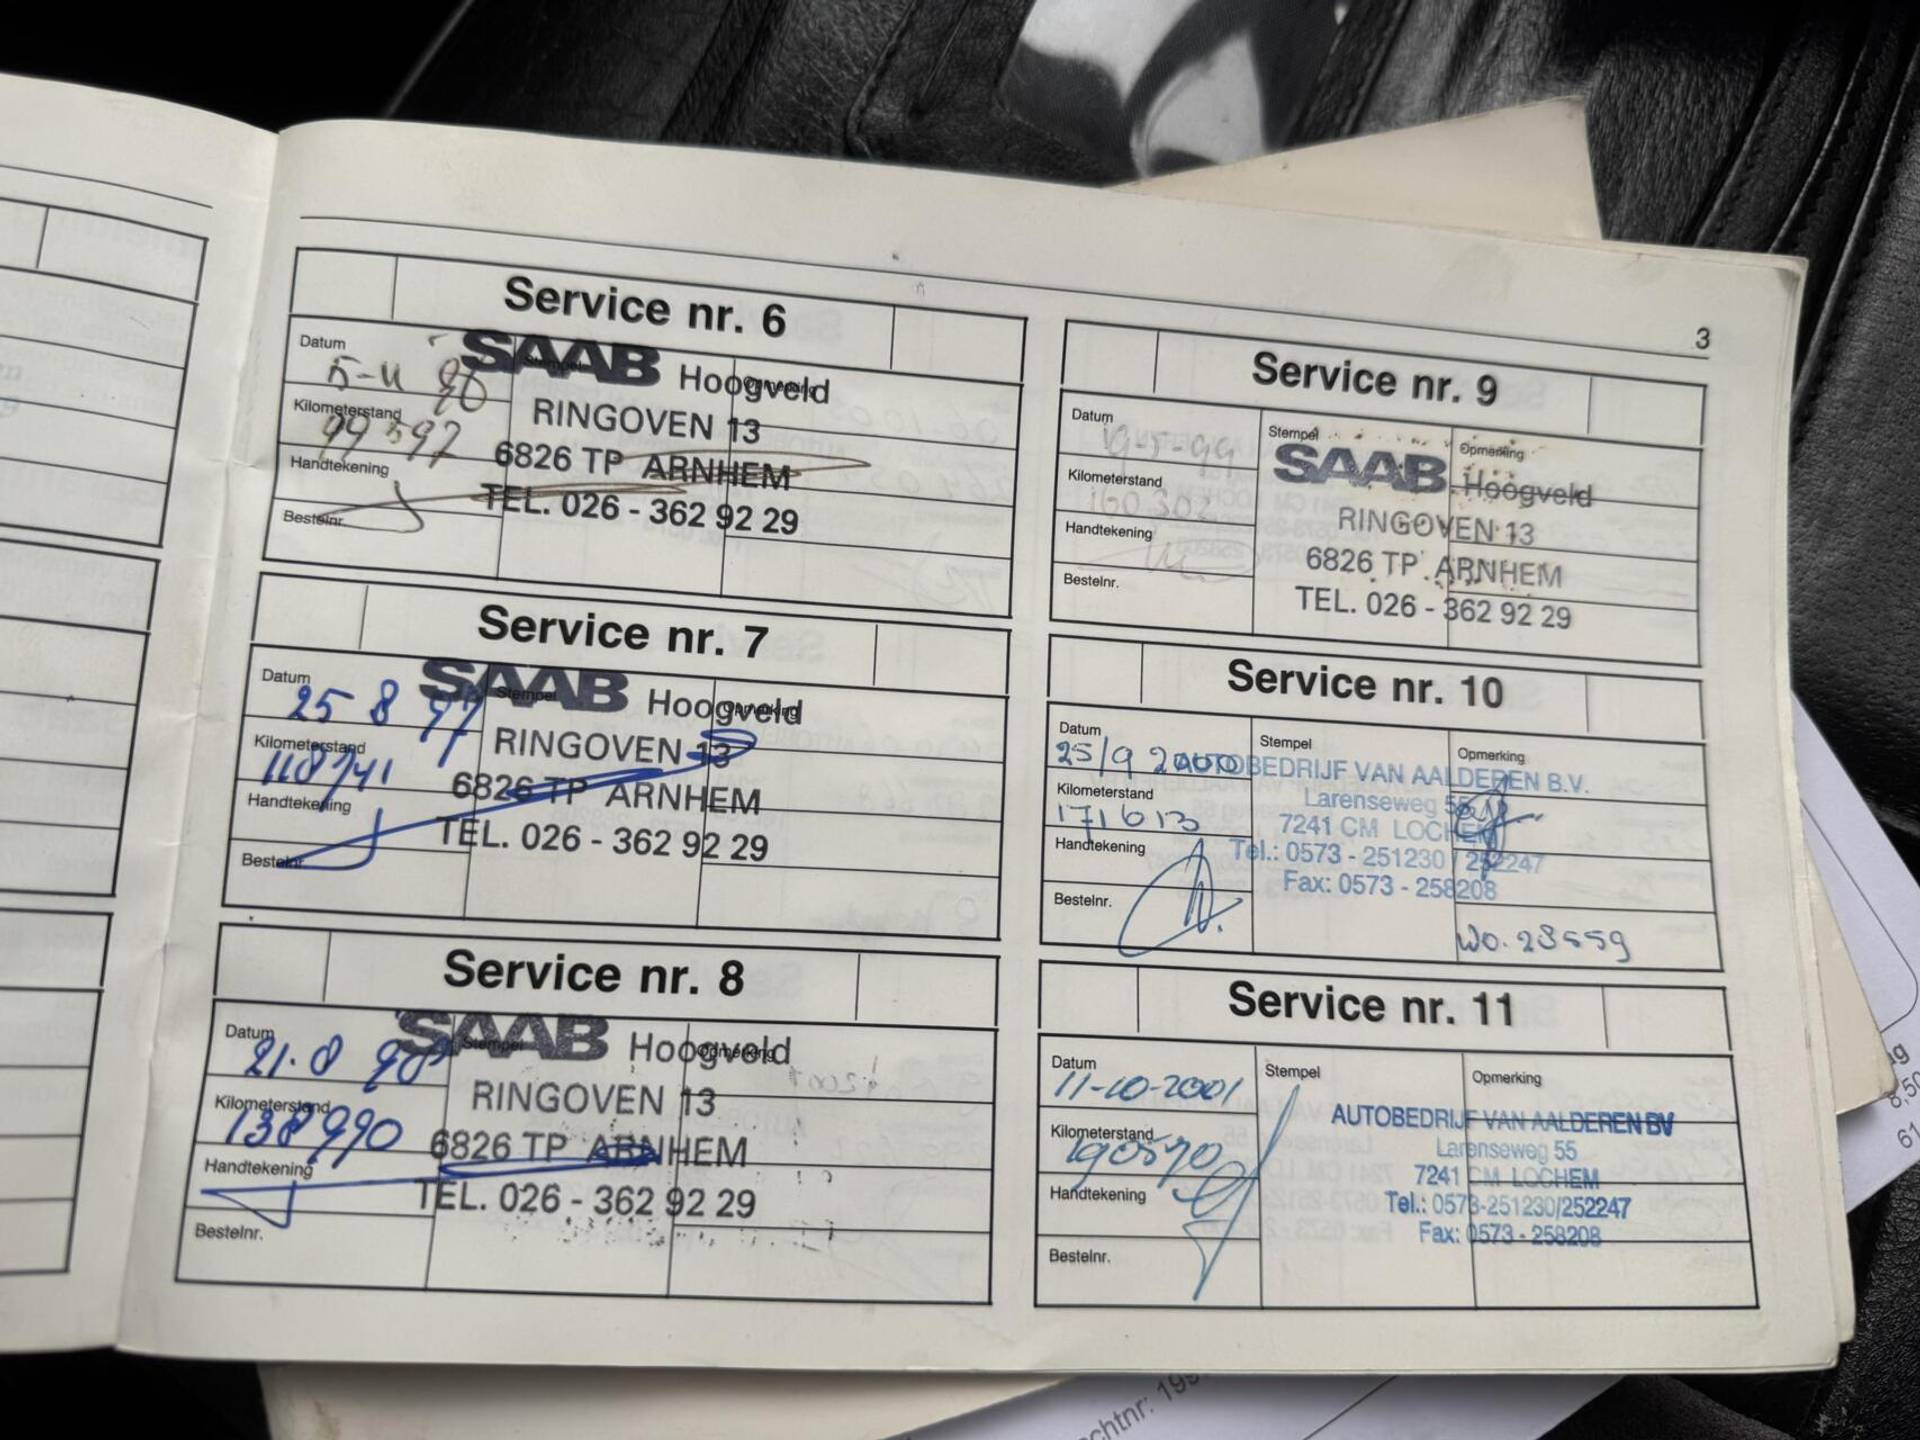 3
Service nr. 6
Datum
Stempel
Opmerking
96
Kilometerstand
99597
Handtekening
Bestelnr.
SAAB Hoogveld
RINGOVEN 13
6826 TP ARNHEM
TEL. 026 - 362 92 29
Service nr. 7
Datum
Stempel
Opmerking
25 8 97
Kilometerstand
118741
Handtekening
Bestelnr.
SAAB Hoogveld
RINGOVEN 13
6826 TP ARNHEM
TEL. 026 - 362 92 29
Service nr. 8
Datum
Stempel
Opmerking
21.8 98
Kilometerstand
138990
Handtekening
Bestelnr.
SAAB Hoogveld
RINGOVEN 13
6826 TP ARNHEM
TEL. 026 - 362 92 29
Service nr. 9
Datum
Stempel
Opmerking
19-5-99
Kilometerstand
160302
Handtekening
Bestelnr.
SAAB Hoogveld
RINGOVEN 13
6826 TP ARNHEM
TEL. 026 - 362 92 29
Service nr. 10
Datum
Stempel
Opmerking
25/9 2000
Kilometerstand
171613
Handtekening
Bestelnr.
AUTOBEDRIJF VAN AALDEREN B.V.
Larenseweg 55
7241 CM LOCHEM
Tel.: 0573 - 251230 / 252247
Fax: 0573 - 258208
Wo. 28559
Service nr. 11
Datum
Stempel
Opmerking
11-10-2001
Kilometerstand
190570
Handtekening
Bestelnr.
AUTOBEDRIJF VAN AALDEREN BV
Larenseweg 55
7241 CM LOCHEM
Tel.: 0573-251230/252247
Fax: 0573 - 258208